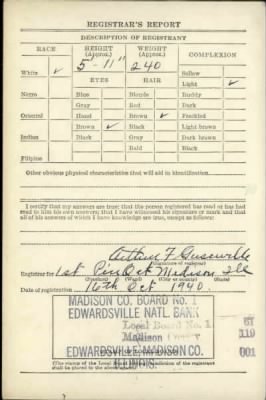 REGISTRAR'S REPORT
DESCRIPTION OF REGISTRANT
RACE HEIGHT (Approx.) WEIGHT (Approx.) COMPLEXION
5' - 11" 240
White ✓ EYES HAIR Sallow
Light ✓
Negro Blue Blonde Ruddy
Gray Red Dark
Oriental Hazel Brown ✓ Freckled
Brown ✓ Black Light brown
Indian Black Gray Dark brown
Bald Black
Filipino
Other obvious physical characteristics that will aid in identification
I certify that my answers are true; that the person registered has read or has had read to him his own answers; that I have witnessed his signature or mark and that all of his answers of which I have knowledge are true, except as follows:
Arthur F
(Signature of registrar)
Registrar for 1st Madison Ill
(Precinct) (Ward) (City or county) (State)
Date of registration 16th Oct. 1940.
MADISON CO. BOARD No. 1
EDWARDSVILLE NATL. BANK
Local Board No. 1
Madison
EDWARDSVILLE, MADISON CO.
ILLINOIS
61
119
001
(The stamp of the Local Board of the registrant shall be placed in the above space.)